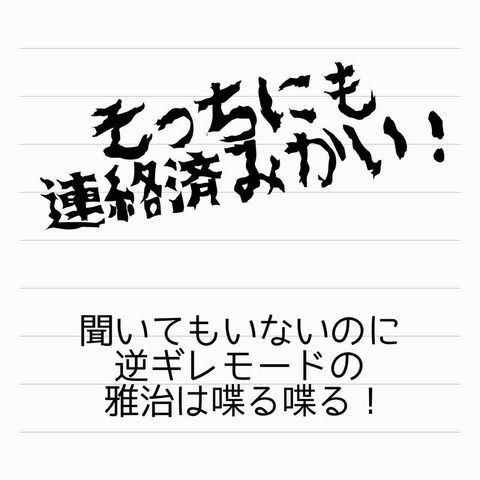 そっちにも
連絡済みかい！
聞いてもいないのに
逆ギレモードの
雅治は喋る喋る！